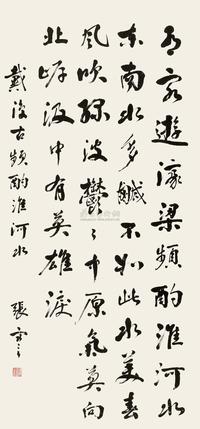 有客遊濠梁頻酌淮河水
东南水多鹹不如此水美春
風吹緑波鬱々中原氣莫向
北岸汲中有英雄淚
戴復古頻酌淮河水 張